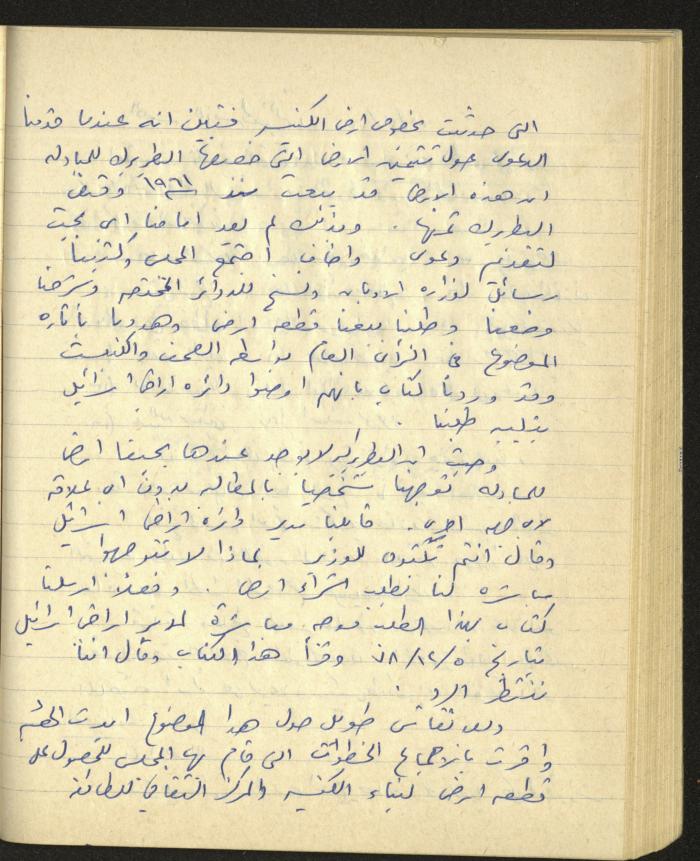 التي حدثت بخصوص ارض الكنيسه فتبين انه عندما قدمنا
الدعوى حول تثمين الارض التي خصصها البطريرك للمبادله
ان هذه الارض قد بيعت منذ ١٩٦١ وقبض
البطريرك ثمنها . وبذلك لم يعد امامنا اي
لتقديم دعوى واضاف اجتمع المجلس وكتبنا
رسائل لوزاره الاديان ونسخ للدوائر المختصه وشرحنا
وضعنا وطلبنا بيعنا قطعه ارض وهددنا باثاره
الموضوع في الرأي العام بواسطه الصحف والكنيست
وقد وردنا كتاب بانهم اوصوا دائره اراضي اسرائيل
بتلبيه طلبنا .
وحيث ان البطريركيه لا يوجد عندها بحيفا ارض
للمبادله توجهنا شخصياً بالمطالبه بدون اي علاقه
لاي جهه اخرى قابلنا مدير دائره اراضي اسرائيل
وقال انتم تكتبون للوزير لماذا لا تتوجهوا
مباشره لنا بطلب شراء ارض . وفعلاً ارسلنا
كتاب بهذا الطلب موجه مباشرة لمدير اراضي اسرائيل
بتاريخ ٧٨/١٢/٥ وقرأ هذا الكتاب وقال اننا
ننتظر الرد .
وبعد نقاش طويل حول هذا الموضوع ايدت الهيئه
واقرت بالاجماع الخطوات التي قام بها المجلس للحصول على
قطعه ارض لبناء الكنيسه والمركز الثقافي للطائفة